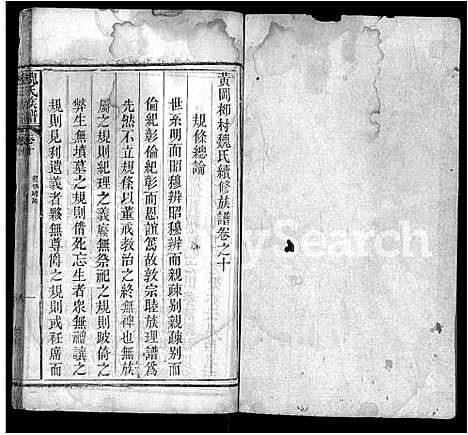 黃岡柳村魏氏續修族譜卷之十
規條總論
世系明而昭穆辨昭穆辨而親疎別親疎別而
倫紀彰倫紀彰而恩誼篤故敦宗睦族理譜為
先然不立規條以董戒教治之終無裨也無族
屬之規則紀理之義廢無祭祀之規則跛倚之
弊生無墳墓之規則借死忘生者眾無禮讓之
規則見利遺義者夥無尊爵之規則或社席而
魏氏族譜
卷之十
規條總論
MySearch